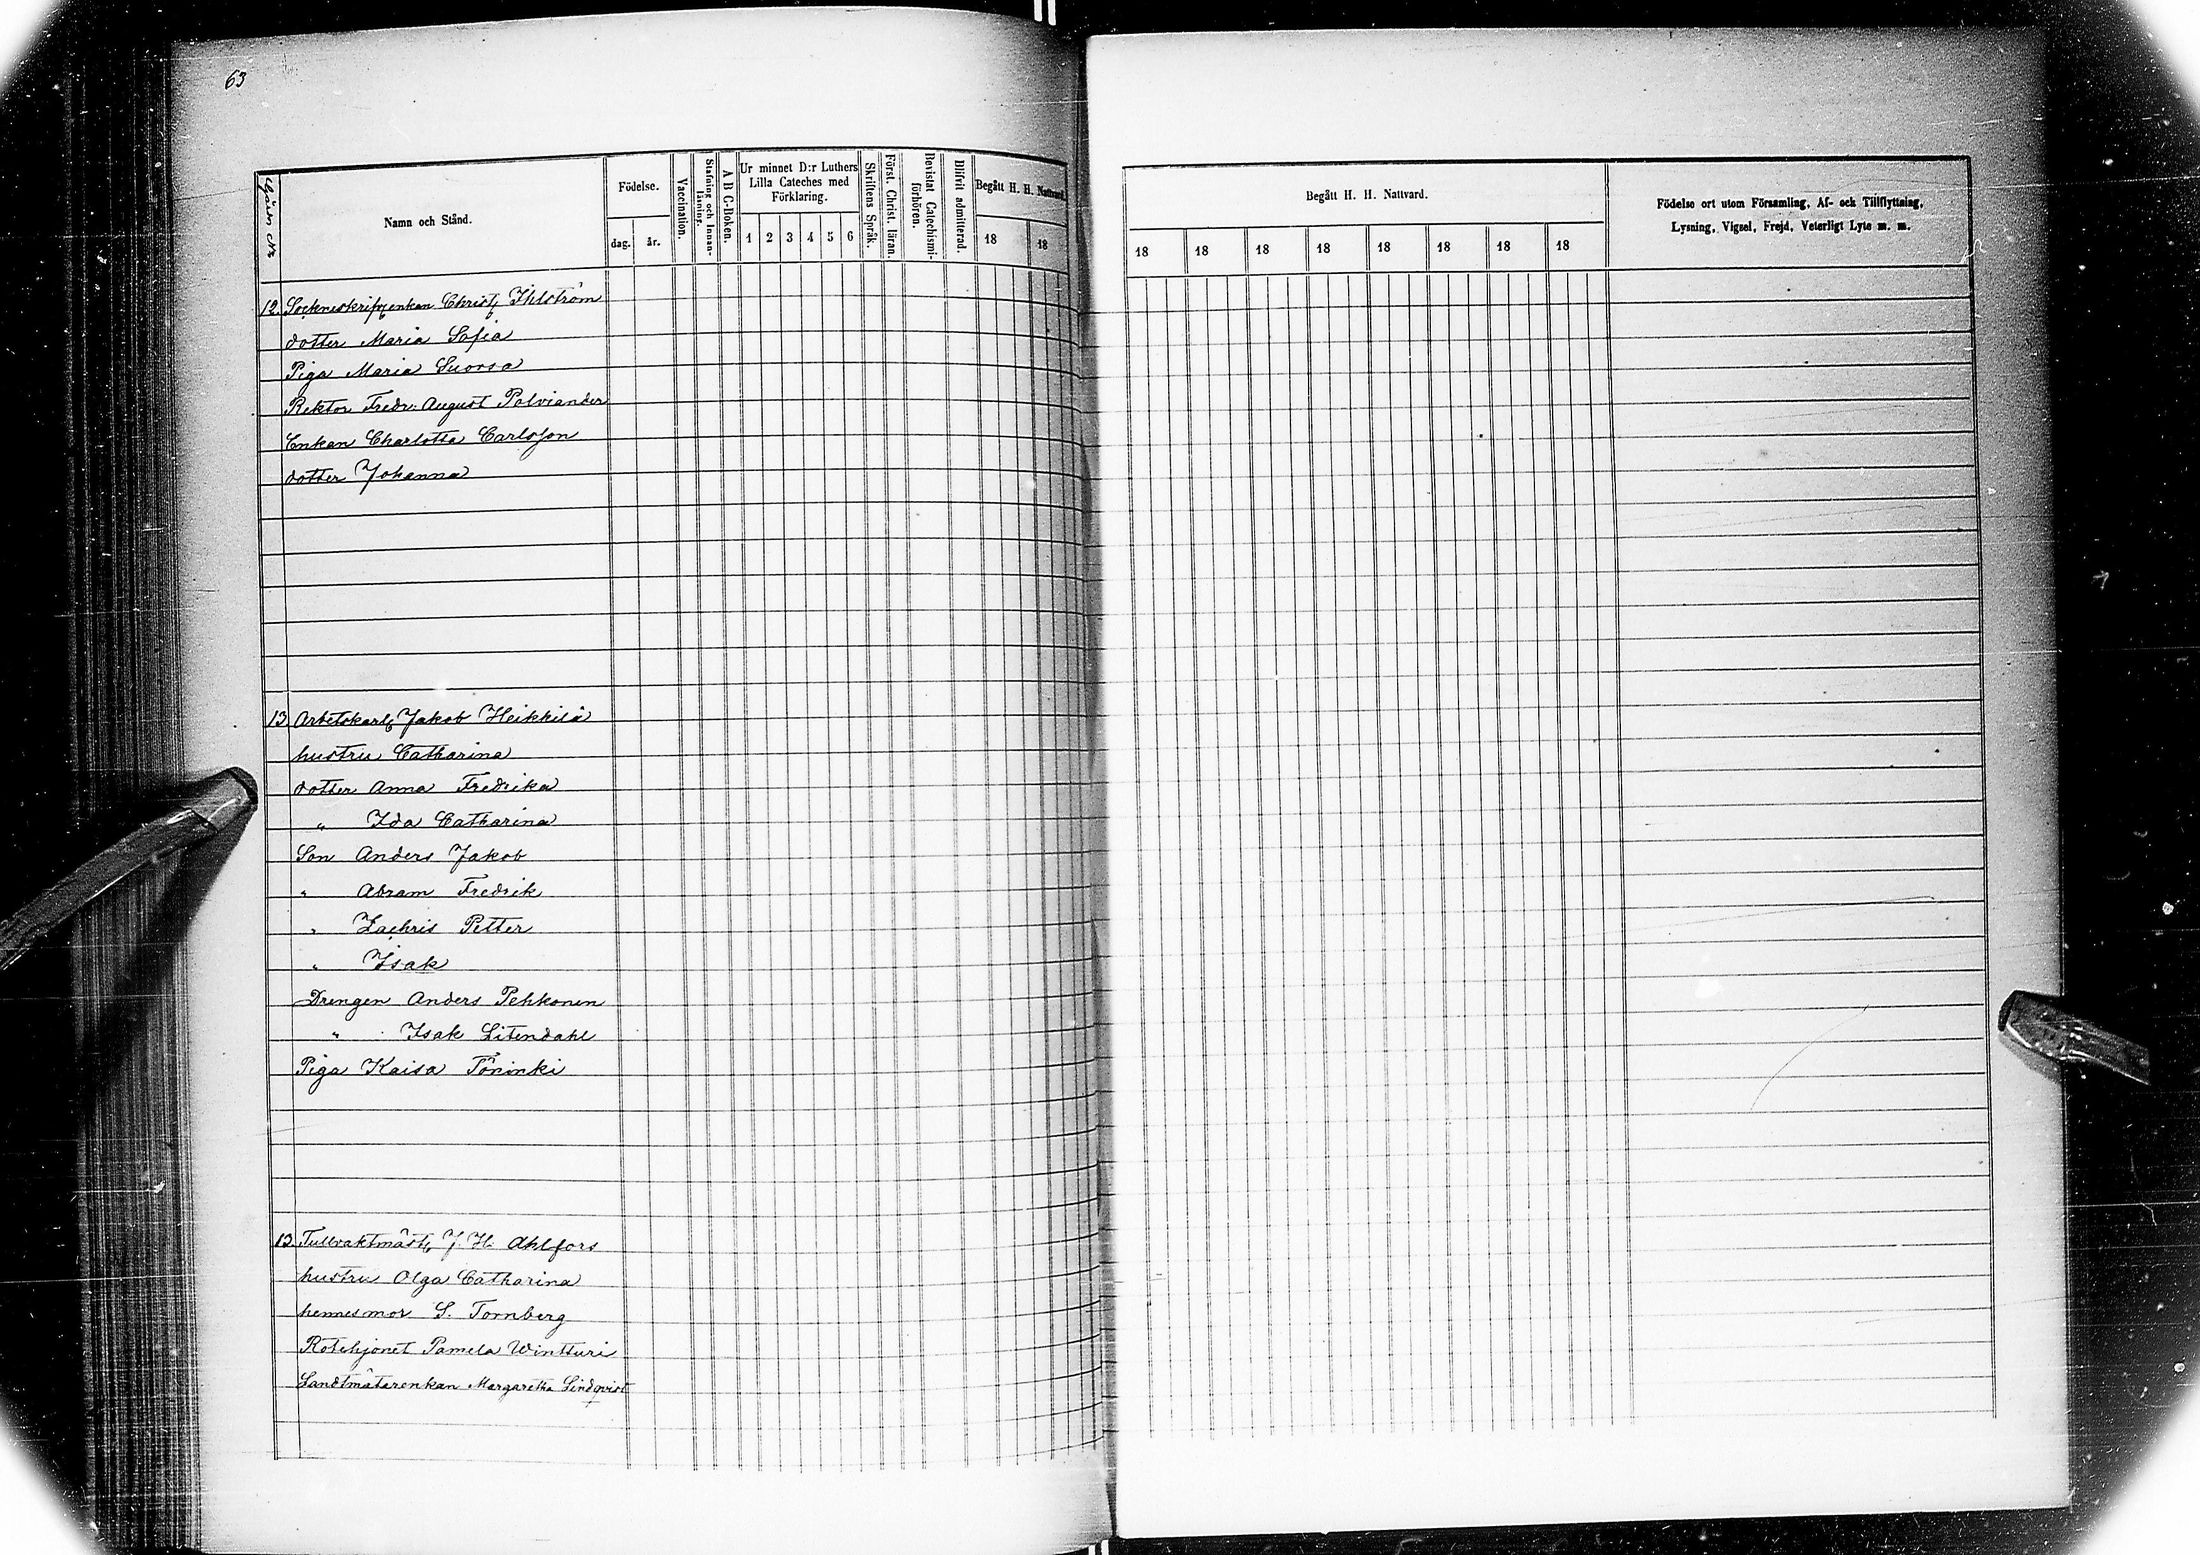 63
Gårds Nr
Namn och Stånd.
Födelse.
dag.
år.
Vaccination.
Stafning och Innan-
läsning.
A B C-Boken.
Ur minnet D:r Luthers
Lilla Cateches med
Förklaring.
1 2 3 4 5 6
Skriftens Språk.
Först. Christ. läran.
Bevistat Catechismi-
förhören.
Blifvit admitterad.
Begått H. H. Nattvard.
18 18
Begått H. H. Nattvard.
18 18 18 18 18 18 18 18
Födelse ort utom Församling, Af- och Tillflyttning,
Lysning, Vigsel, Frejd, Veterligt Lyte m. m.
12. Sockneskrifvenkan Christ. Ihlström
dotter Maria Sofia
Piga Maria Suorsa
Rektor Fredr: August Polviander
Enkan Charlotta Carlsson
dotter Johanna
13 Arbetskarl Jakob Heikkilä
hustru Catharina
dotter Anna Fredrika
" Ida Catharina
Son Anders Jakob
" Abram Fredrik
" Zachris Petter
" Isak
Drengen Anders Pehkonen
" Isak Litendahl
Piga Kaisa Töninki
13 Tullvaktmäst J. H. Ahlfors
hustru Olga Catharina
hennes mor S. Tornberg
Rotehjonet Pamela Wintturi
Landtmätarenkan Margaretha Lindqvist